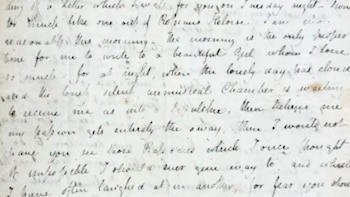 ing off a Letter which I wrote for you on Tuesday night— 'twas
too much like one out of Ro{u}sseau's Heloise. I am more
reasonable this morning. The morning is the only proper
time for me to write to a beautiful Girl whom I love
so much: for at night, when the lonely day has closed
and the lonely silent unmusical Chamber is waiting
to receive me as into a Sepulchre, then believe me
my passion gets entirely the sway, then I would not
have you see those Rapsodies which I once thought
it impossible I should ever give way to and which
I have often laughed at in another, for fear you shou